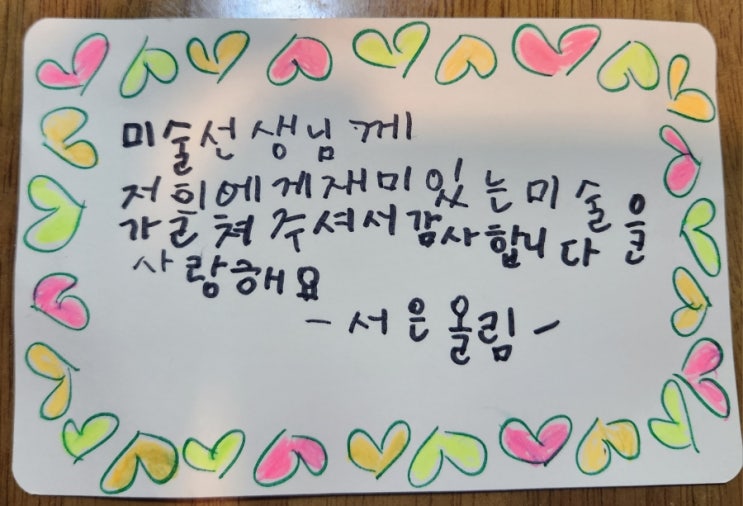 미술선생님께
저희에게재미있는미술을
가르쳐주셔서감사합니다
사랑해요
-서은올림-